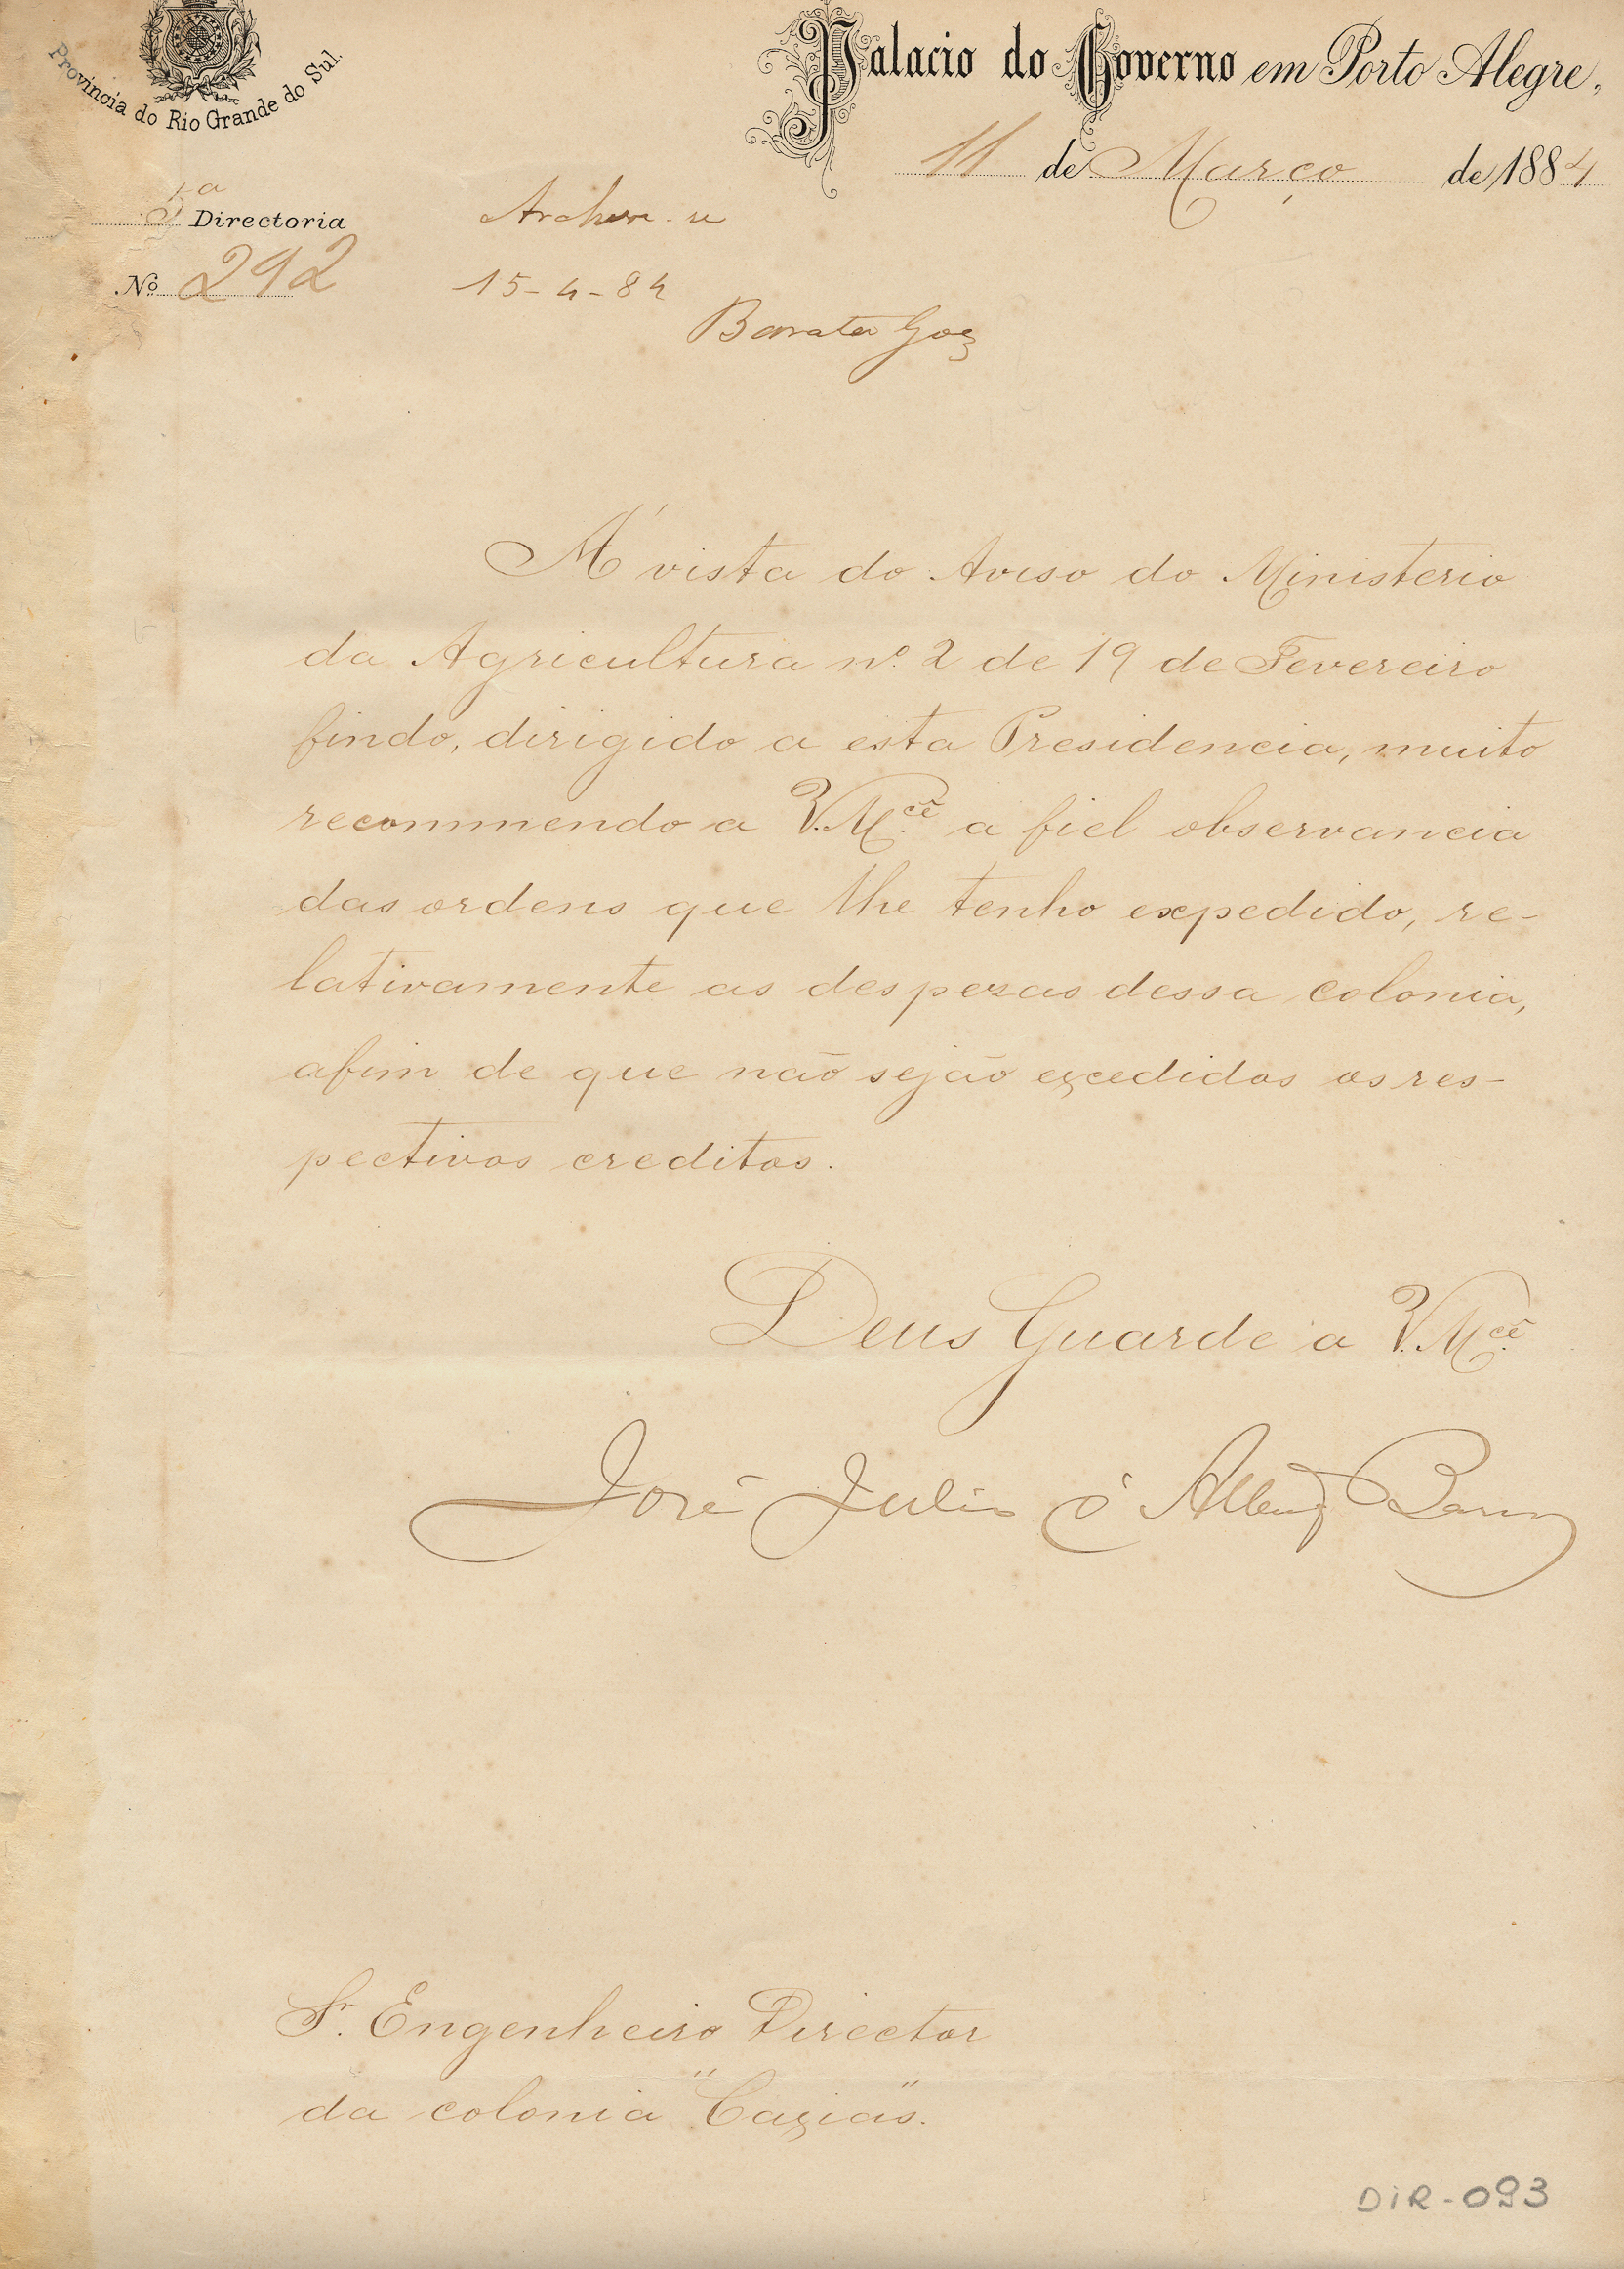 Provincia do Rio Grande do Sul.
Palacio do Governo em Porto Alegre,
11 de Março de 1884
5ª Directoria
Nº 292
Archive-se
15-4-84
Barata Goes
Á vista do Aviso do Ministerio
da Agricultura nº 2 de 19 de Fevereiro
findo, dirigido a esta Presidencia, muito
recommendo a V.M.cê a fiel observancia
das ordens que lhe tenho expedido, re-
lativamente as despezas dessa colonia,
afim de que não sejão excedidos os res-
pectivos creditos.
Deus Guarde a V.M.cê
José Julio d'Albuqe Barros
Sr. Engenheiro Director
da colonia "Caxias".
DIR-093